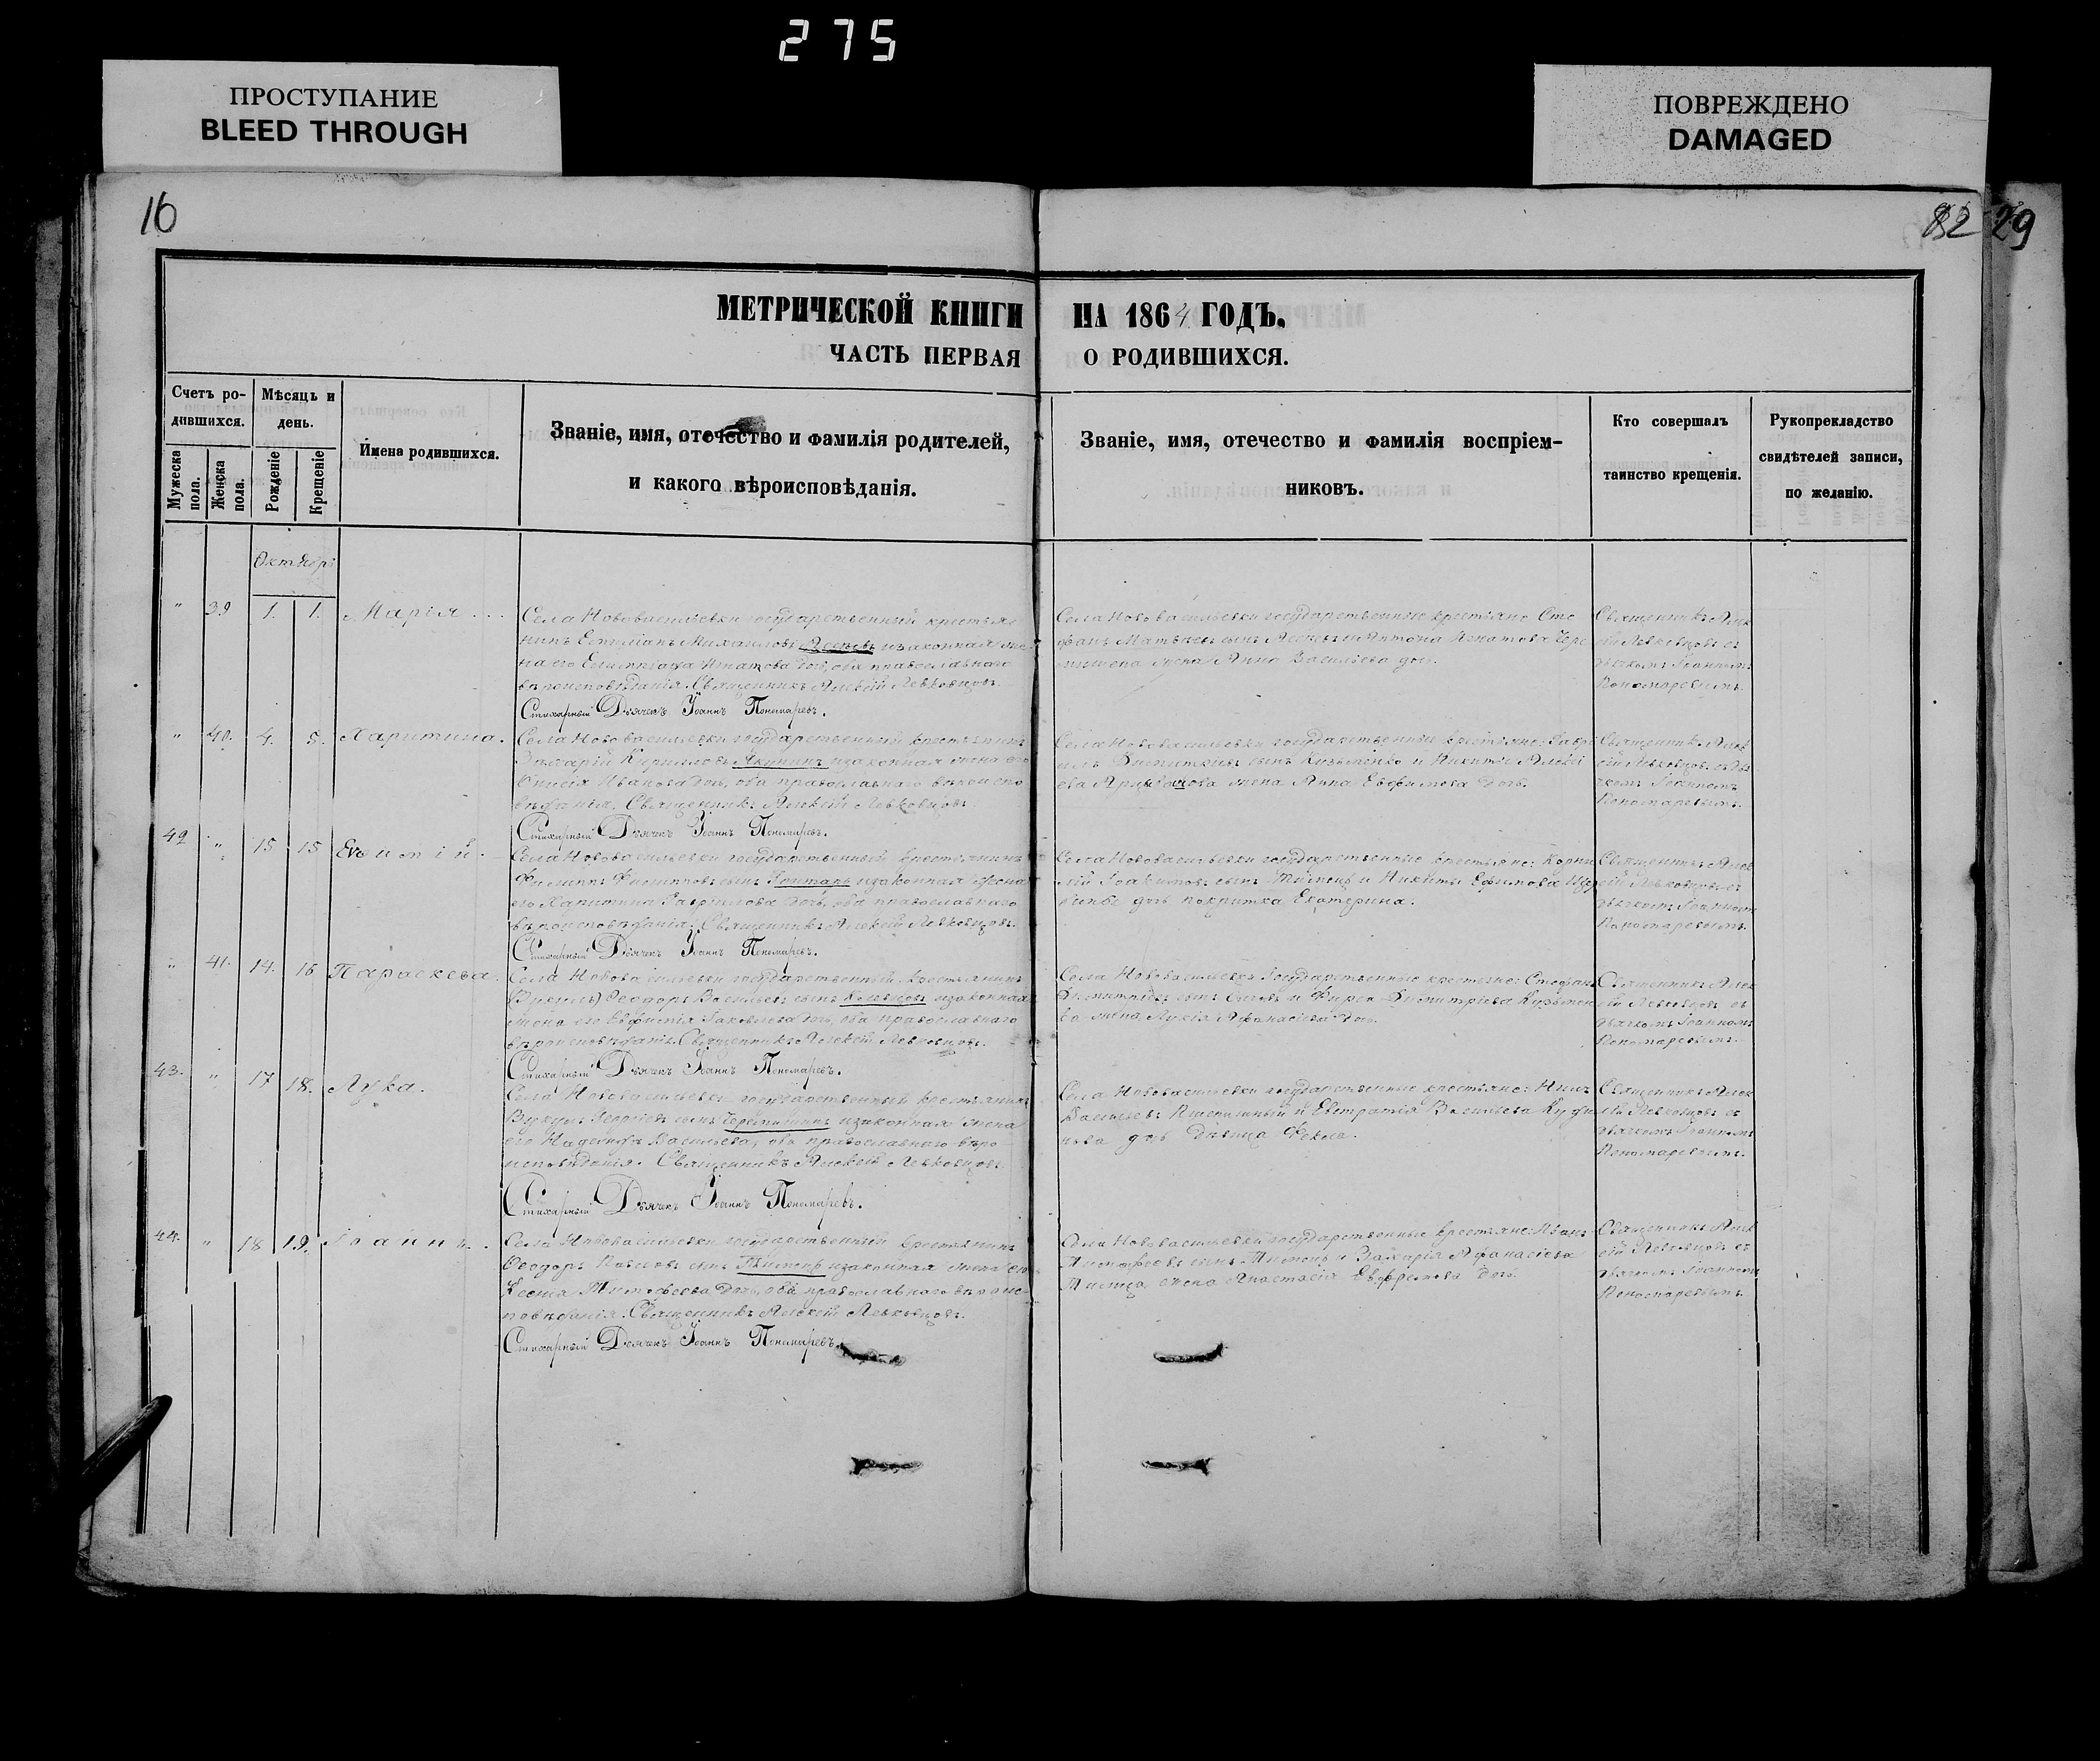 275
ПРОСТУПАНИЕ
BLEED THROUGH
ПОВРЕЖДЕНО
DAMAGED
16
82 29
МЕТРИЧЕСКОЙ КНИГИ НА 1864 ГОДЪ.
ЧАСТЬ ПЕРВАЯ О РОДИВШИХСЯ.
Счетъ ро-
дившихся.
Мужеска пола.
Женска пола.
Мѣсяцъ и
день.
Рожденіе
Крещеніе
Имена родившихся.
Званіе, имя, отечество и фамилія родителей,
и какого вѣроисповѣданія.
Званіе, имя, отечество и фамилія воспріем-
никовъ.
Кто совершалъ
таинство крещенія.
Рукоприкладство
свидѣтелей записи,
по желанію.
Октябрь
" 39 1. 1. Марія
Села Нововасильевки государственный крестья-
нинъ Михаиловъ изаконная же-
на его Игнатова дочь, оба православнаго
вѣроисповѣданія. Священникъ Алексій Левковцовъ.
Стихарный Дьячекъ Іоаннъ Пономаревъ.
Села Нововасильевки государственные крестьяне Сте
фанъ Матвѣевъ сынъ Игнатова
жена Анна Васильева дочь.
Священникъ Алек
сій Левковцовъ съ
дьячкомъ Іоанномъ
Пономаревымъ.
" 40. 4. 5. Харитина.
Села Нововасильевки государственный крестьянинъ
Кирилловъ изаконная жена его
Ивановa дочь, оба православнаго вѣроиспо
вѣданія. Священникъ Алексій Левковцовъ.
Стихарный Дьячекъ Іоаннъ Пономаревъ.
Села Нововасильевки государственные крестьяне: Гаврі
илъ Димитріевъ сынъ Кузьменко и Никиты Алексі
ева жена Анна Евфимова дочь.
Священникъ Алек
сій Левковцовъ съ дья
чкомъ Іоанномъ
Пономаревымъ.
42 " 15 15
Села Нововасильевки государственный крестьянинъ
Филиппъ Филипповъ сынъ Гонтарь изаконная жена
его Харитина Гавріилова дочь, оба православнаго
вѣроисповѣданія. Священникъ Алексій Левковцовъ.
Стихарный Дьячекъ Іоаннъ Пономаревъ.
Села Нововасильевки государственные крестьяне: Корни
лій Іоакимовъ сынъ и Никиты Ефимова
дочь покритка Екатерина.
Священникъ Алек
сій Левковцовъ съ
дьячкомъ Іоанномъ
Пономаревымъ.
" 41. 14. 16 Параскева.
Села Нововасильевки государственный крестьянинъ
(Вукулъ) Феодоръ Васильевъ сынъ изаконная
жена его Евфимія Іаковлева дочь, оба православнаго
вѣроисповѣданія. Священникъ Алексій Левковцовъ.
Стихарный Дьячекъ Іоаннъ Пономаревъ.
Села Нововасильевки государственные крестьяне: Стефанъ
Димитріевъ сынъ и Фирса Димитріева Кузьмен
ка жена Лукія Афанасіева дочь.
Священникъ Алек
сій Левковцовъ съ
дьячкомъ Іоанномъ
Пономаревымъ.
43. " 17 18. Лука.
Села Нововасильевки государственный крестьянинъ
Вукулъ Георгіевъ сынъ изаконная жена
его Надежда Васильева, оба православнаго вѣро
исповѣданія. Священникъ Алексій Левковцовъ.
Стихарный Дьячекъ Іоаннъ Пономаревъ.
Села Нововасильевки государственные крестьяне: Нилъ
Васильевъ и Евстратія Васильева
дочь дѣвица Фекла.
Священникъ Алек
сій Левковцовъ съ
дьячкомъ Іоанномъ
Пономаревымъ.
44. " 18 19. Іоаннъ.
Села Нововасильевки государственный крестьянинъ
Феодоръ Павловъ сынъ изаконная жена его
Ксенія Тимофеева дочь, оба православнаго вѣроис-
повѣданія. Священникъ Алексій Левковцовъ.
Стихарный Дьячекъ Іоаннъ Пономаревъ.
Села Нововасильевки государственные крестьяне: Иванъ
Тимофеевъ сынъ и Захарія Афанасіева
жена Анастасія Евфремова дочь.
Священникъ Алек
сій Левковцовъ съ
дьячкомъ Іоанномъ
Пономаревымъ.